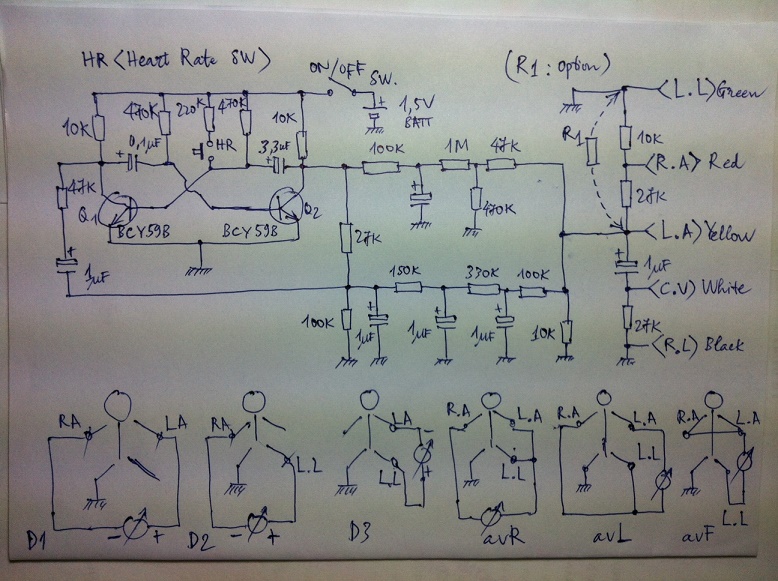 HR <Heart Rate SW>
ON/OFF SW.
(R1: Option)
(L.L) Green
10K
470K
220K
470K
10K
1,5V
BATT
0,1µF
HR
3,3µF
100K
1M
47K
R1
10K
(R.A) Red
47K
Q1
BCY59B
BCY59B
Q2
27K
470K
27K
(L.A) Yellow
1µF
1µF
150K
330K
100K
(C.V) White
100K
1µF
1µF
1µF
10K
27K
(R.L) Black
RA
LA
RA
L.L
LA
L.L
R.A
L.A
L.L
R.A
L.A
L.L
R.A
L.A
L.L
D1
- +
D2
- +
D3
- +
avR
avL
avF